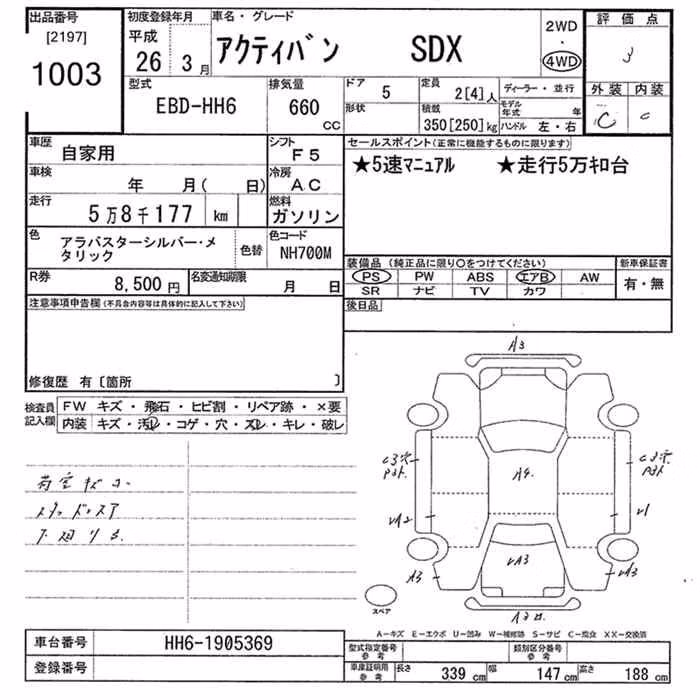 出品番号
[2197]
1003
初度登録年月
平成
26 3月
車名・グレード
アクティバン SDX
2WD
・
4WD
評価点
3
外装 内装
C C
型式
EBD-HH6
排気量
660
CC
ドア
5
形状
定員
2[4]人
積載
350[250]kg
ディーラー・並行
モデル年式 年
ハンドル 左・右
車歴
自家用
シフト
F5
車検
年 月( 日)
冷房
AC
走行
5万8千177 km
燃料
ガソリン
色
アラバスターシルバー・メ
タリック
色替
色コード
NH700M
R券
8,500円
名変通知期限
月 日
セールスポイント(正常に機能するものに限ります)
★5速マニュアル ★走行5万キロ台
装備品(純正品に限り○をつけてください)
PS PW ABS エアB AW
SR ナビ TV カワ
新車保証書
有・無
後日品
注意事項申告欄(不具合内容等は具体的に記入して下さい)
修復歴 有〔箇所 〕
検査員
記入欄
FW キズ・飛石・ヒビ割・リペア跡・×要
内装 キズ・汚レ・コゲ・穴・ズレ・キレ・破レ
荷室キズ
A3
C3穴
C3穴
A4
A3
A3
スペア
A-キズ E-エクボ U-凹み W-補修跡 S-サビ C-腐食 XX-交換済
車台番号
HH6-1905369
登録番号
型式指定番号
参考
類別区分番号
参考
車庫証明用
参考
長さ 339cm 幅 147cm 高さ 188cm